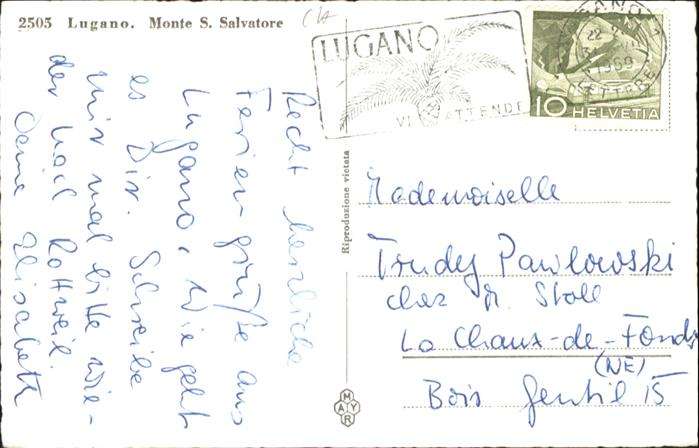 2505 Lugano. Monte S. Salvatore
LUGANO
VI ATTENDE
LUGANO
22
1960
LETTERE
10 HELVETIA
Recht herzliche
Feriengrüße aus
Lugano. Wie geht
es Dir. Schreibe
mir mal bitte wie-
der nach Rottweil.
Deine Elisabeth
Riproduzione vietata
Mademoiselle
Trudy Pawlowski
chez M. Stoll
La Chaux-de-Fonds
(NE)
Bois Gentil 15
MAYR